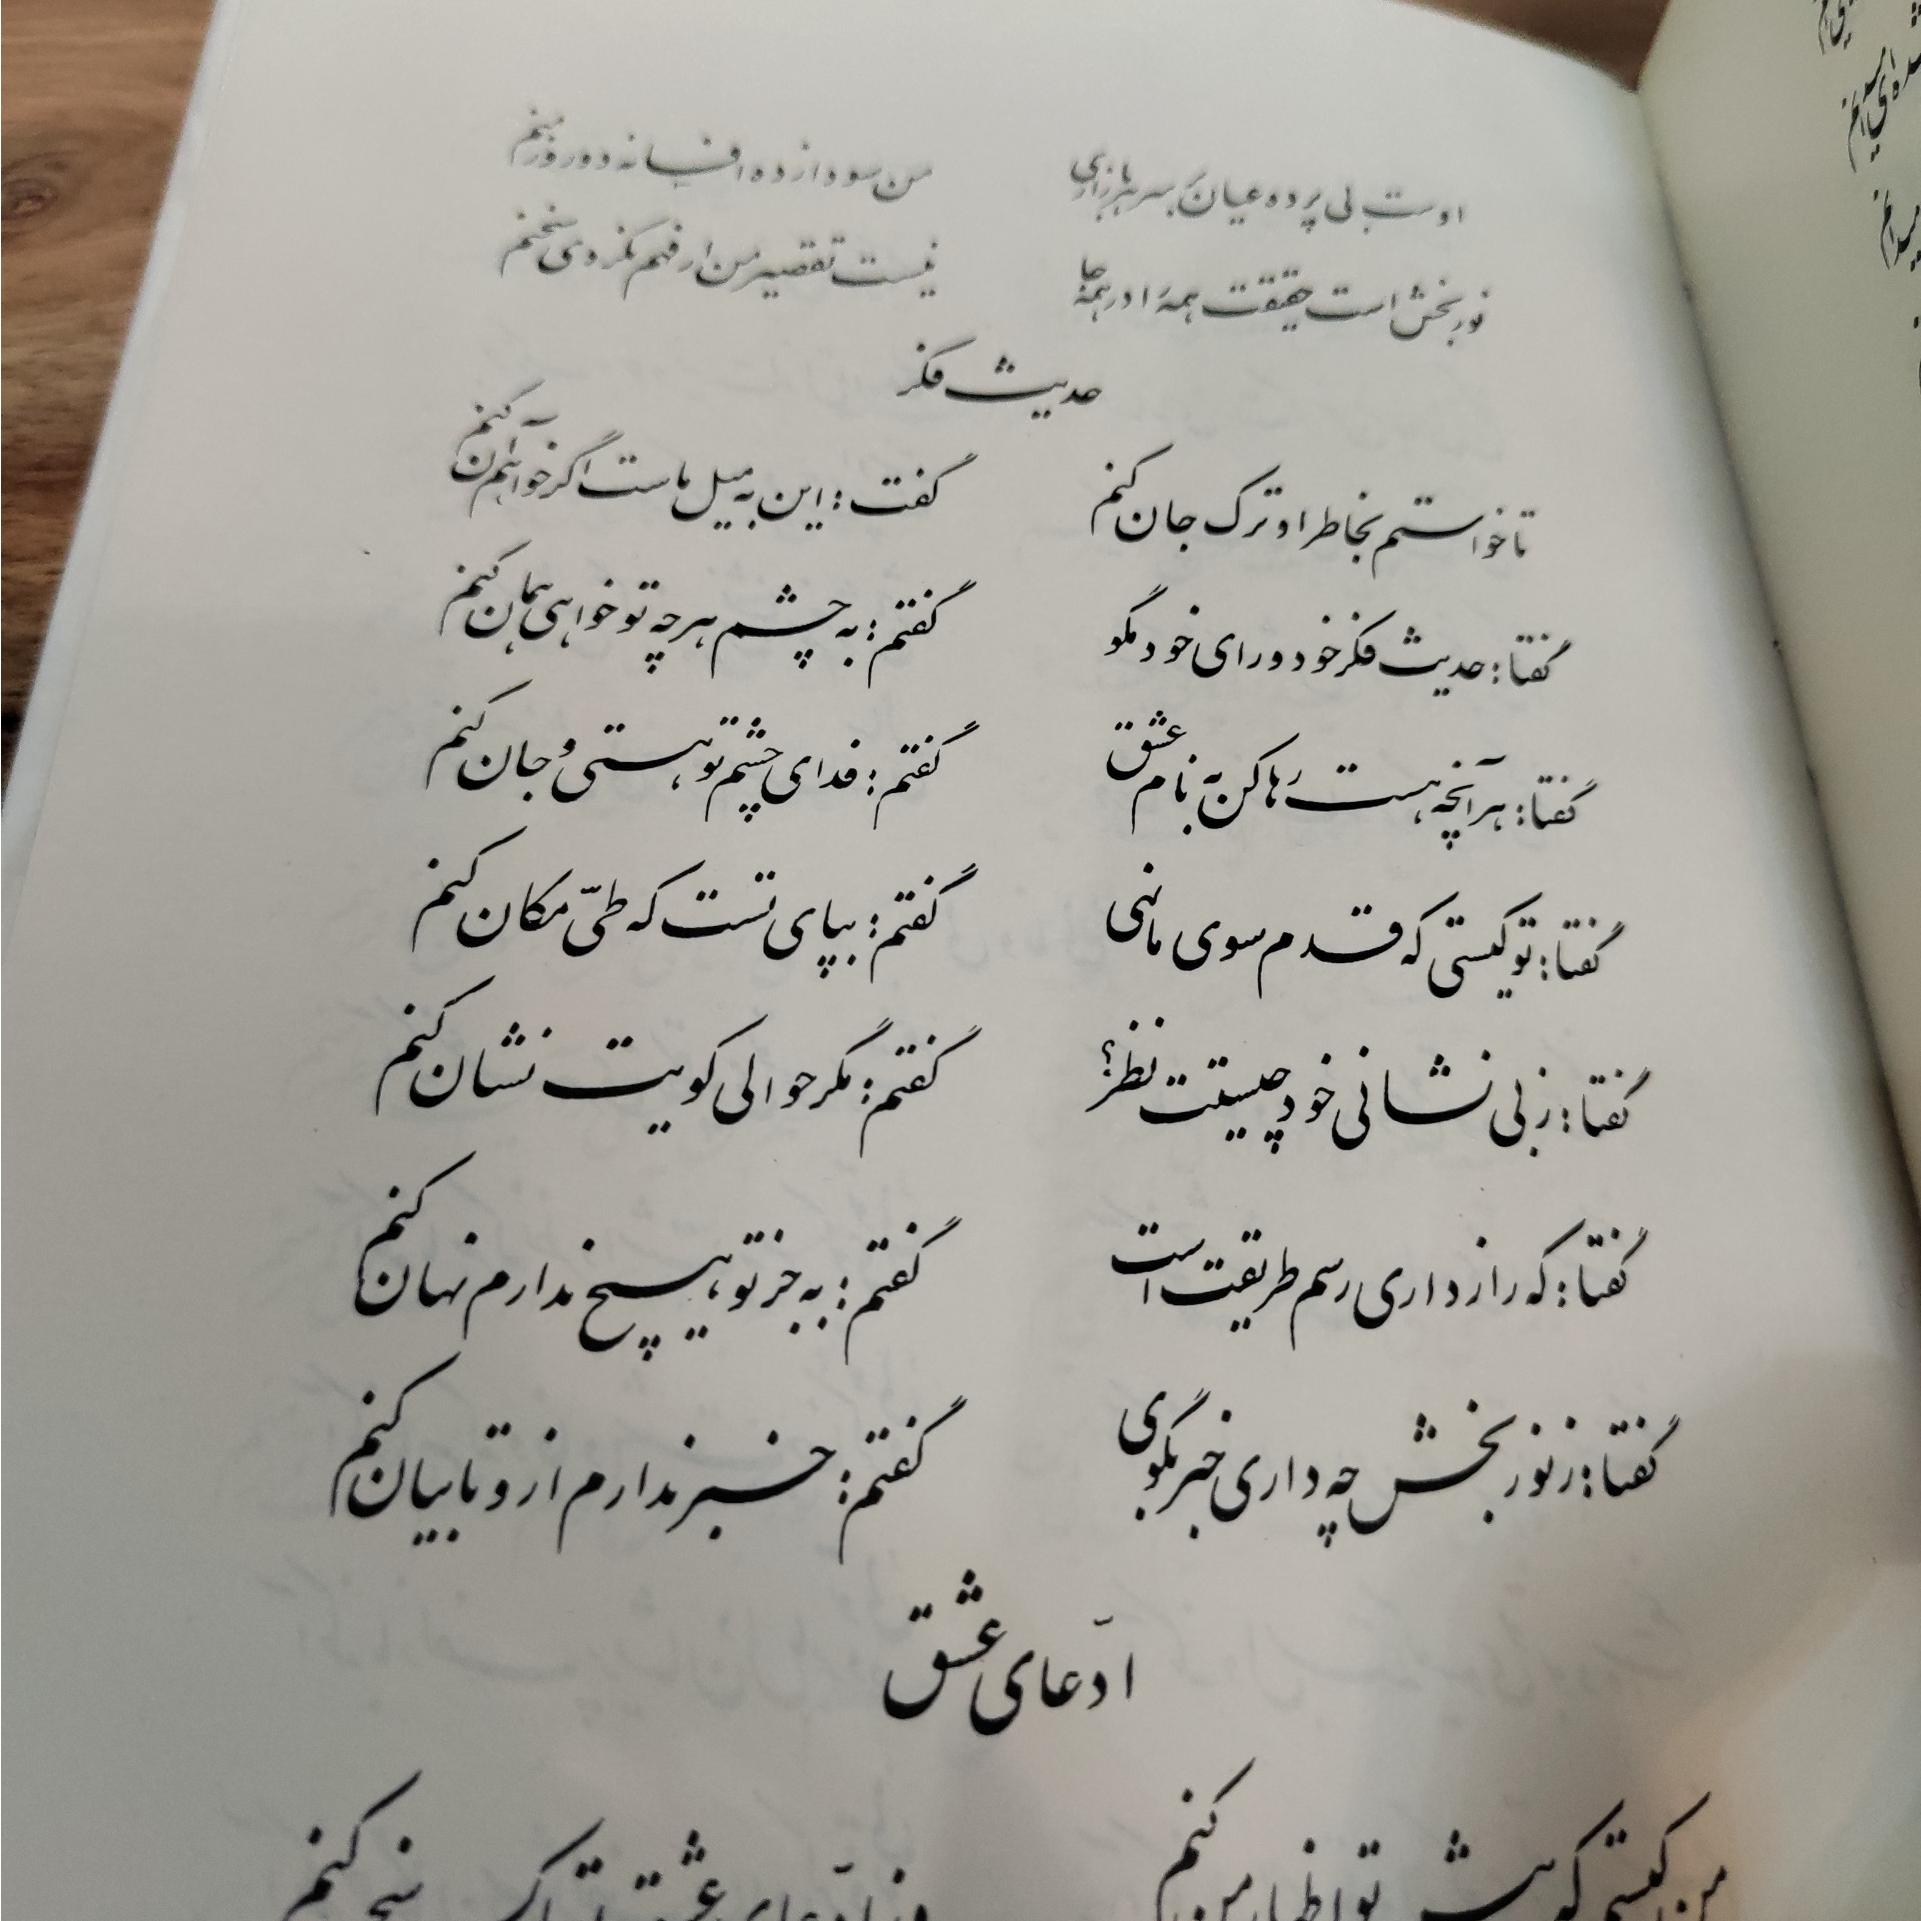 اوست بی پرده عیان بر سر هر بازاری من سودازده افسانه دور و زمنم
نوربخش است حقیقت همه او در همه جا نیست تقصیر من ار فهم نکردی سخنم
حدیث فکر
تا خواستم بخاطر او ترک جان کنم گفت: این به میل ماست اگر خواهم آن کنم
گفتا: حدیث فکر خود و رای خود مگو گفتم: به چشم هرچه تو خواهی همان کنم
گفتا: هر آنچه هست رها کن به نام عشق گفتم: فدای چشم تو هستی و جان کنم
گفتا: تو کیستی که قدم سوی ما نهی گفتم: بپای تست که طیّ مکان کنم
گفتا: ز بی نشانی خود چیستت نظر؟ گفتم: مگر حوالی کویت نشان کنم
گفتا: که رازداری رسم طریقت است گفتم: به جز تو هیچ ندارم نهان کنم
گفتا: ز نوربخش چه داری خبر بگوی گفتم: خبر ندارم ازو تا بیان کنم
ادّعای عشق
من کیستم که پیش تو اظهار من کنم وز ادّعای عشق تو کنم